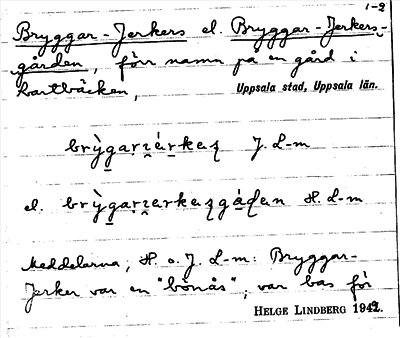 1-2
Bryggar-Jerkers el. Bryggar-Jerkers-
gården, förr namn på en gård i
Svartbäcken,
Uppsala stad, Uppsala län.
J. L-m
el. H. L-m
Meddelarna, H. o. J. L-m: Bryggar-
Jerker var en "bönås", var bas för
HELGE LINDBERG 1942.